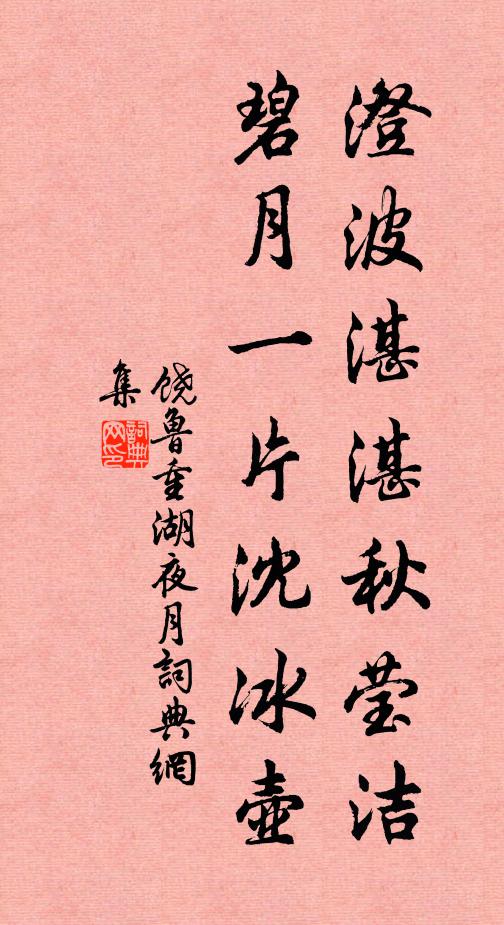 澄波湛湛秋莹洁
碧月一片沈冰壶
饶鲁重湖夜月詞典網
集
詞典网印